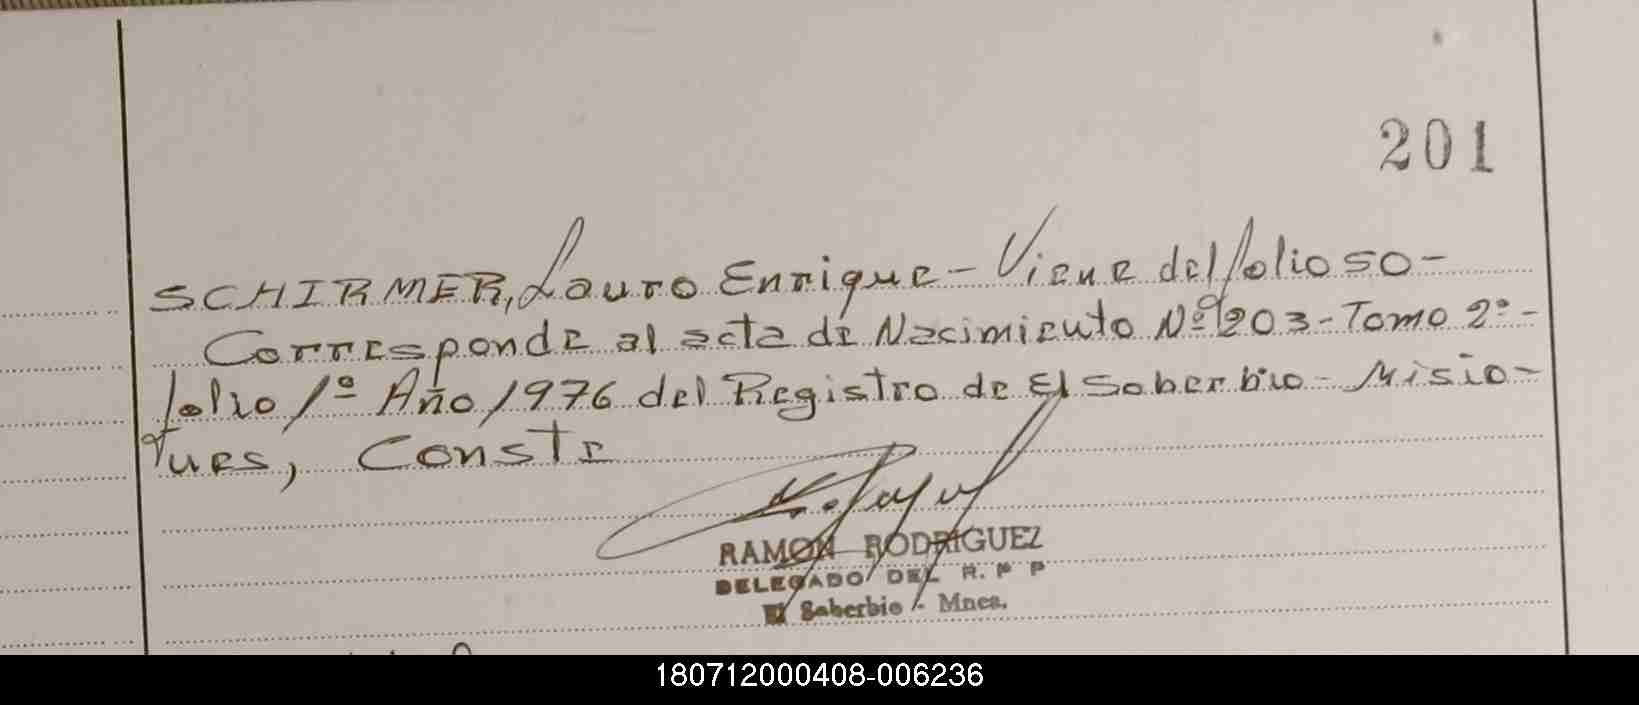 201
SCHIRMER, Lauro Enrique - Viene del folio 50 -
Corresponde al acta de Nacimiento Nº 203 - Tomo 2º -
folio 1º Año 1976 del Registro de El Soberbio - Misio-
nes, Conste
RAMON RODRIGUEZ
DELEGADO DEL R. P P
El Soberbio - Mnes.
180712000408-006236